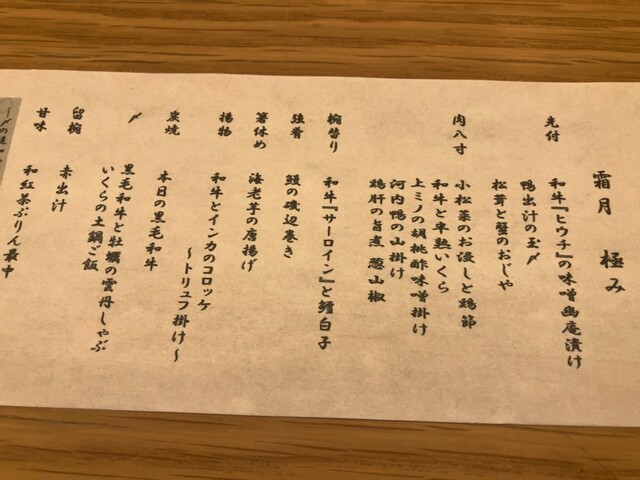 霜月 極み
先付
和牛『ヒウチ』の味噌幽庵漬け
鴨出汁の玉〆
松茸と蟹のおじや
肉八寸
小松菜のお浸しと鶏節
和牛と半熟いくら
上ミノの胡桃酢味噌掛け
河内鴨の山掛け
鶏肝の旨煮 葱山椒
椀替り
和牛『サーロイン』と鱈白子
強肴
鰻の磯辺巻き
箸休め
海老芋の唐揚げ
揚物
和牛とインカのコロッケ
～トリュフ掛け～
炭焼
本日の黒毛和牛
〆
黒毛和牛と牡蠣の雲丹しゃぶ
いくらの土鍋ご飯
留椀
赤出汁
甘味
和紅茶ぷりん最中